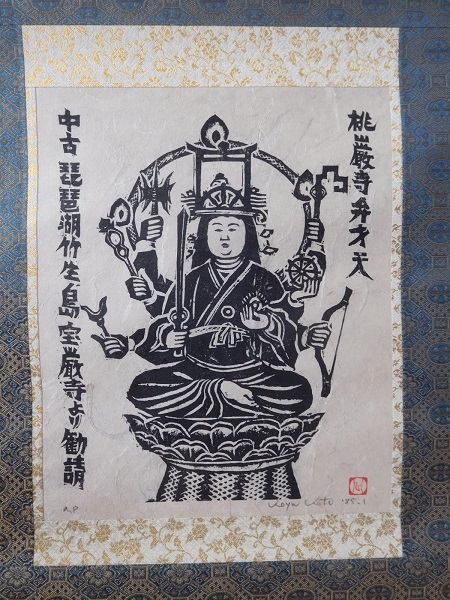 桃巌寺弁才天
中古琵琶湖竹生島宝巌寺より勧請
a.p
Koyu Kato '85.1